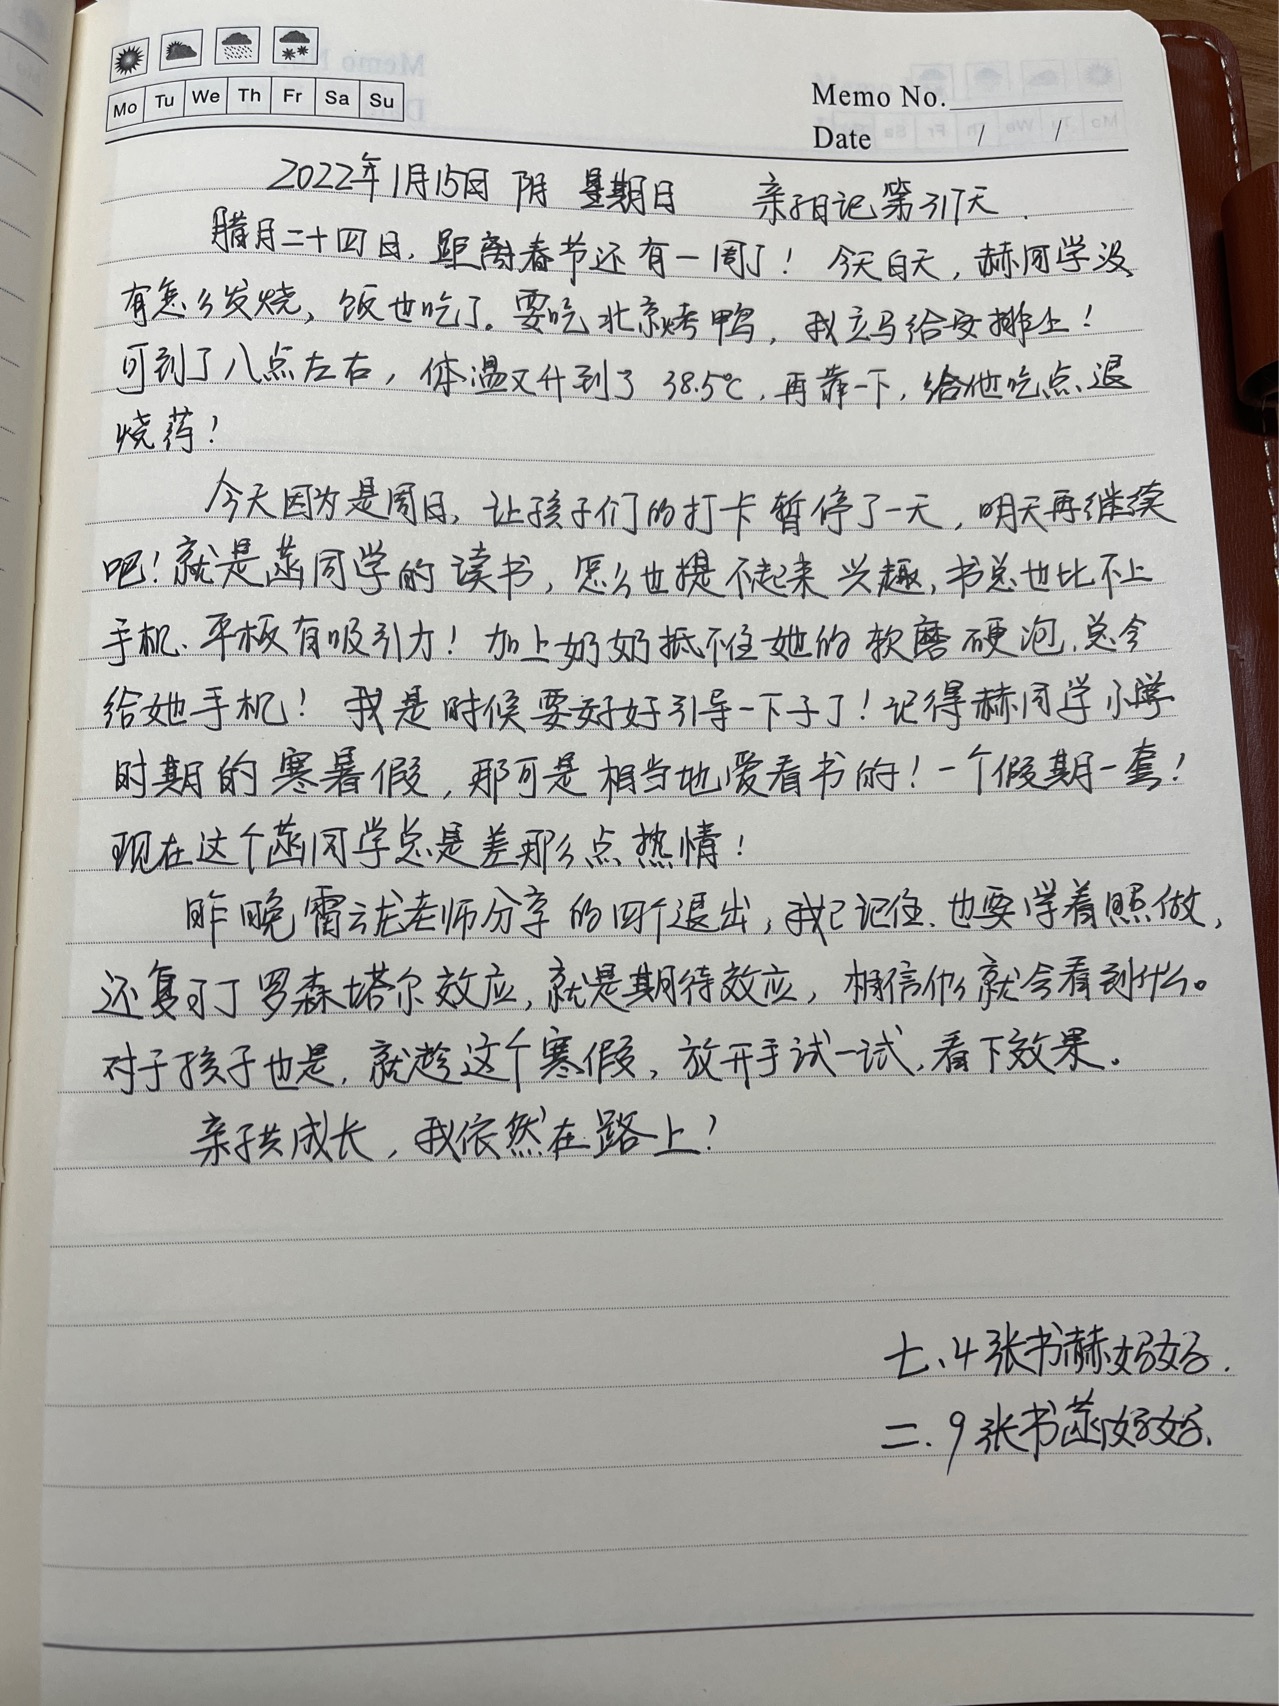 Mo Tu We Th Fr Sa Su
Memo No.
Date / /
2022年1月15日 阴 星期日 亲子日记第317天.
腊月二十四日,距离春节还有一周了！今天白天,赫同学没
有怎么发烧,饭也吃了。要吃北京烤鸭,我立马给安排上！
可到了八点左右,体温又升到了38.5℃,再靠一下,给他吃点退
烧药！
今天因为是周日,让孩子们的打卡暂停了一天,明天再继续
吧！就是菡同学的读书,怎么也提不起来兴趣,书总也比不上
手机、平板有吸引力！加上奶奶抵不住她的软磨硬泡,总会
给她手机！我是时候要好好引导一下子了！记得赫同学小学
时期的寒暑假,那可是相当地爱看书的！一个假期一套！
现在这个菡同学总是差那么点热情！
昨晚霄云龙老师分享的四个退出,我已记住、也要学着照做,
还复习了罗森塔尔效应,就是期待效应,相信什么就会看到什么。
对于孩子也是,就趁这个寒假,放开手试一试,看下效果。
亲子共成长,我依然在路上！
七、4张书赫妈妈.
二.9张书菡妈妈.